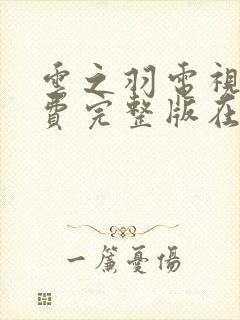 雲之羽電視
費完整版在
一簾憂傷